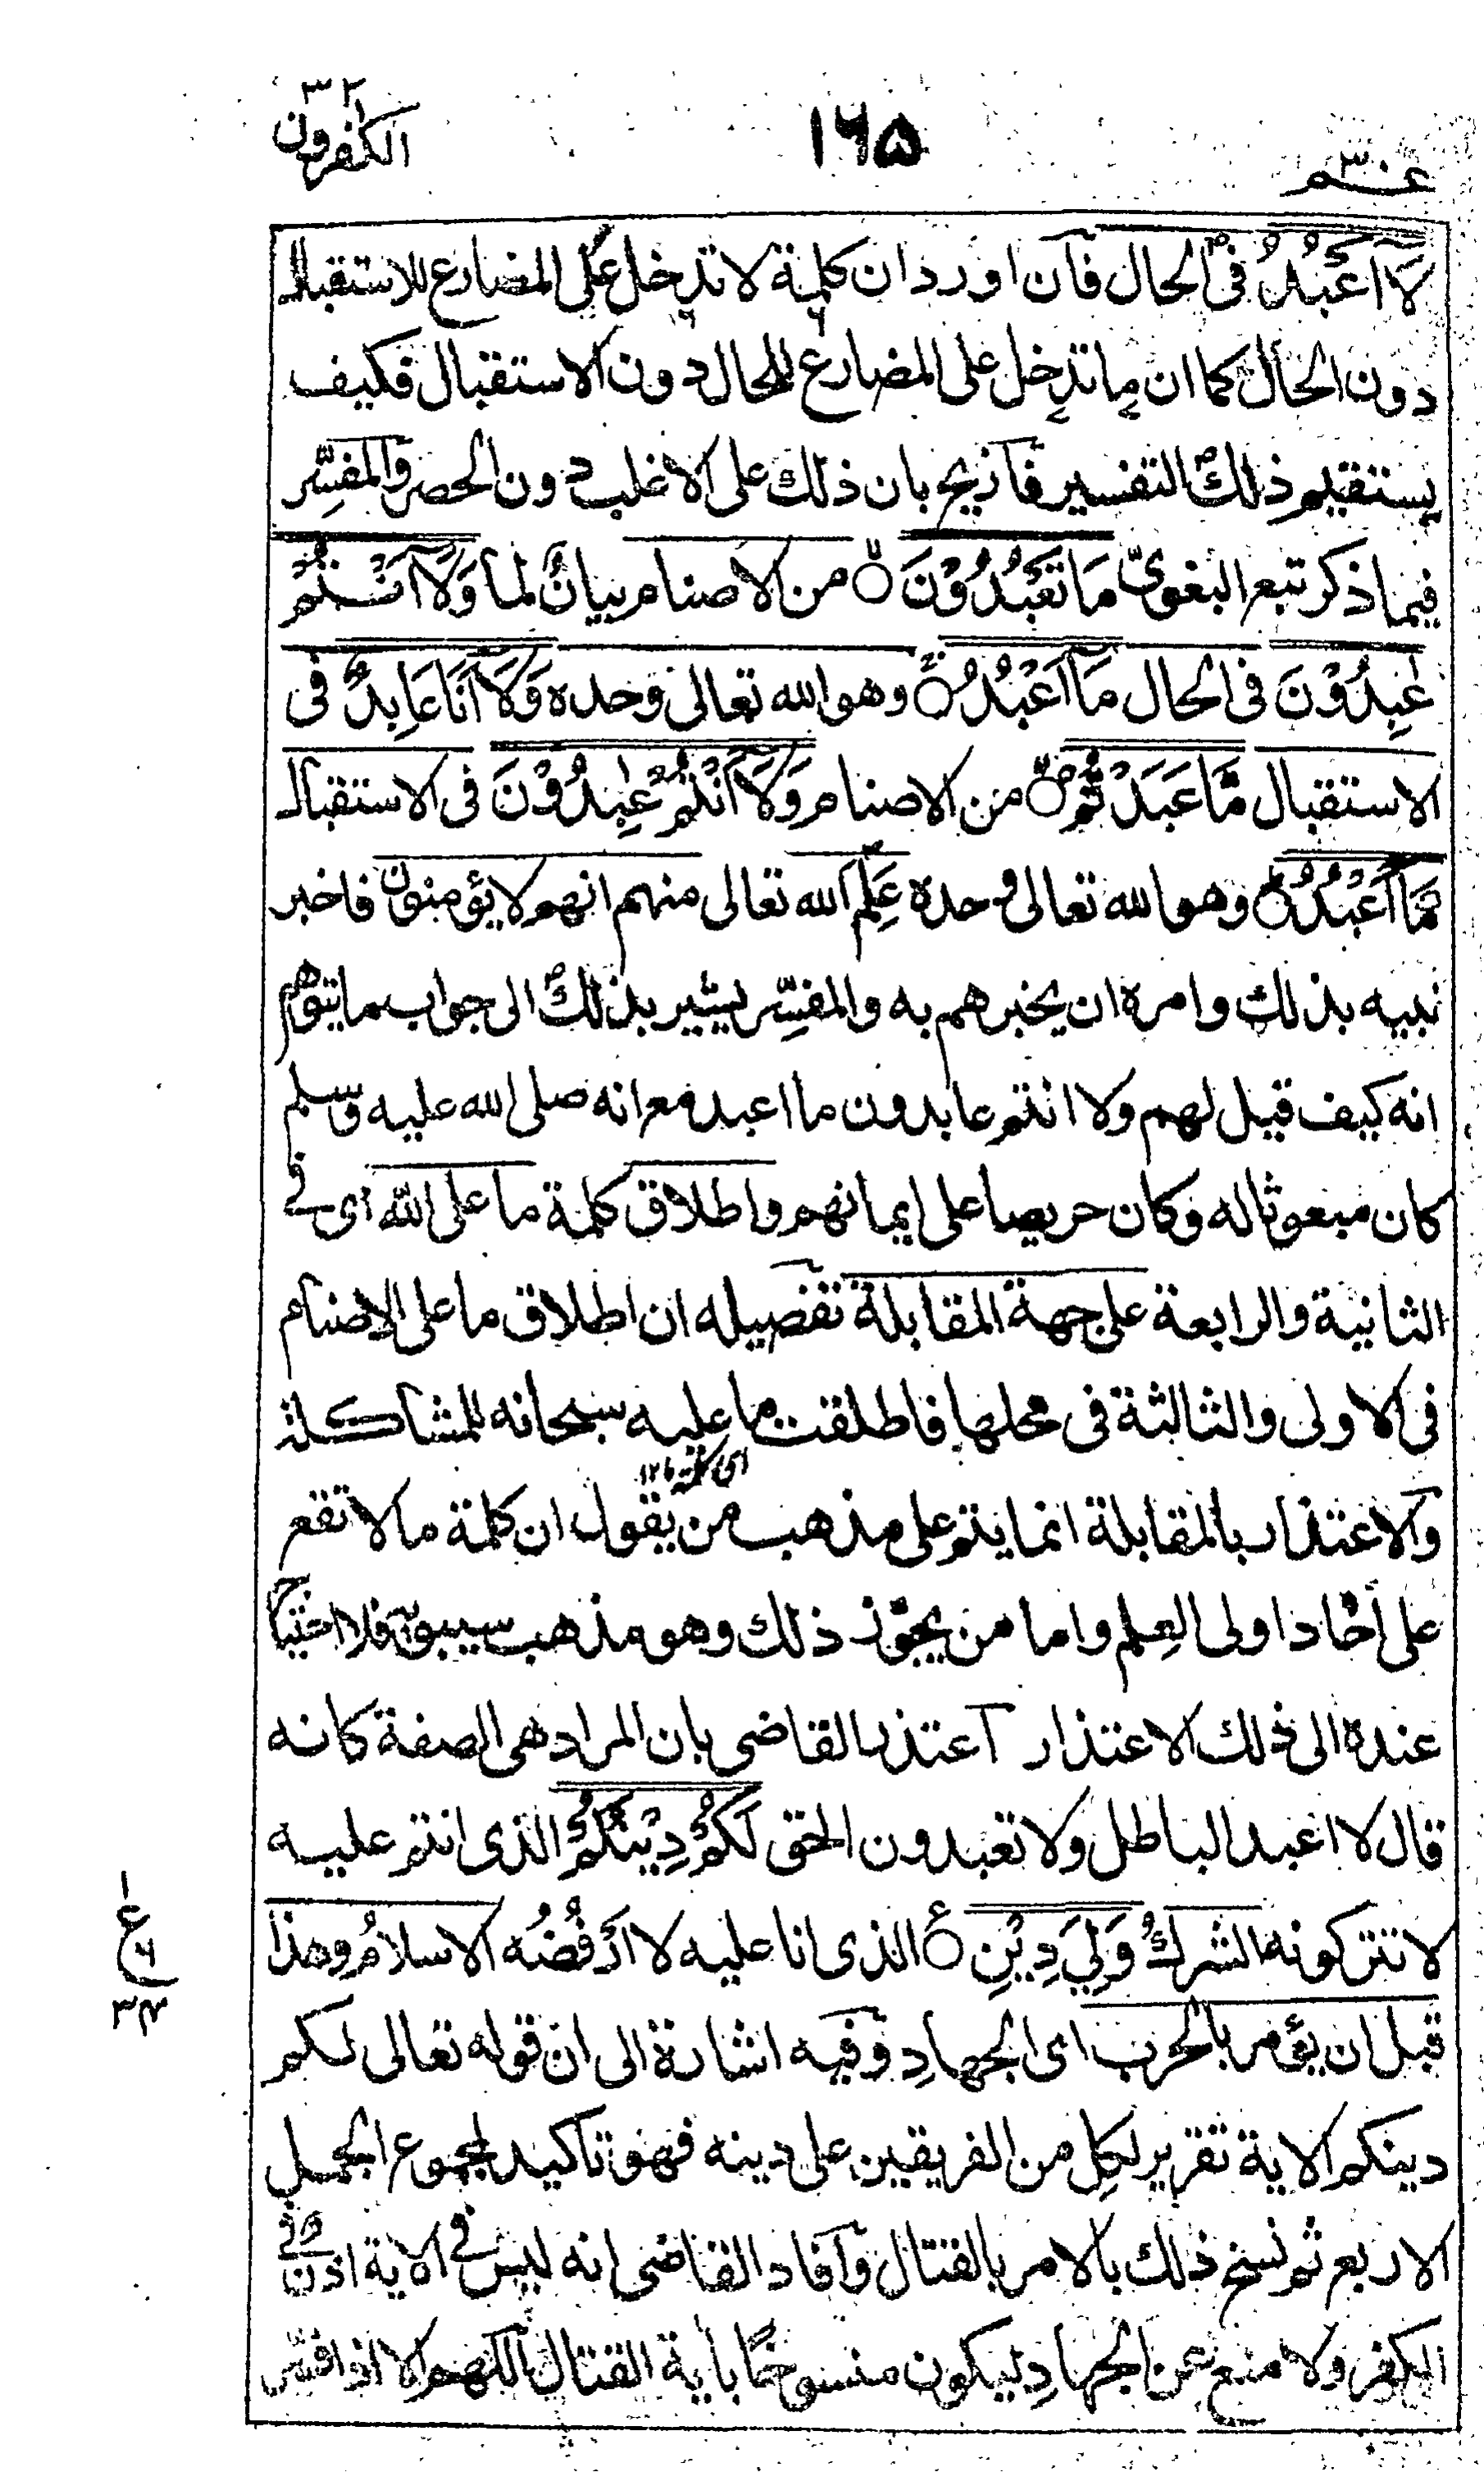 عم ٣٠
١٦٥
الكفرون
لَآ اَعْبُدُ فى الحال فان اورد ان كلمة لا تدخل على المضارع للاستقبال
دون الحال كما ان ما تدخل على المضارع للحال دون الاستقبال فكيف
يستقيم ذلك التفسير فازيح بان ذلك على الاغلب دون الحصر والمفسِّر
فيما ذكر تبع البغوىّ مَا تَعْبُدُوْنَ ۙ من الاصنام بيانٌ لما وَلَآ اَنْتُمْ
عٰبِدُوْنَ فى الحال مَآ اَعْبُدُ ۚ وهو الله تعالى وحده وَلَآ اَنَا عَابِدٌ فى
الاستقبال مَّا عَبَدْتُّمْ ۙ من الاصنام وَلَآ اَنْتُمْ عٰبِدُوْنَ فى الاستقبال
مَآ اَعْبُدُ ۭ وهو الله تعالى وحده عَلِمَ الله تعالى منهم انهم لا يؤمنون فاخبر
نبيه بذلك وامره ان يخبرهم به والمفسِّر يشير بذلك الى جواب ما يتوهم
انه كيف قيل لهم ولا انتم عابدون ما اعبد مع انه صلى الله عليه وسلم
كان مبعوثا له وكان حريصا على ايمانهم واطلاق كلمة ما على الله اى فى
الثانية والرابعة على جهة المقابلة تفصيله ان اطلاق ما على الاصنام
فى الاولى والثالثة فى محلها فاطلقت ما عليه سبحانه للمشاكلة
اى كلمة ما ١٢
والاعتذار بالمقابلة انما يتم على مذهب من يقول ان كلمة ما لا تقع
على اٰحاد اولى العِلم واما من يجوّز ذلك وهو مذهب سيبويه فلا احتياج
عنده الى ذلك الاعتذار اعتذر القاضى بان المراد هى الصفة كانه
قال لا اعبد الباطل ولا تعبدون الحق لَكُمْ دِيْنُكُمْ الذى انتم عليه
لا تتركونه الشرك وَلِيَ دِيْنِ ۧ الذى انا عليه لا اَرْفُضُه الاسلامُ وهذا
قبل ان يؤمر بالحرب اى الجهادِ وفيه اشارة الى ان قوله تعالى لكم
دينكم الاية تقرير لكل من الفريقين على دينه فهو تاكيد لمجموع الجمل
الاربع ثم نسخ ذلك بالامر بالقتال وافاد القاضى انه ليس فى الاية اذن فى
الكفر ولا منع عن الجهادِ ليكون منسوخًا باٰية القتال اللهم الا اذا فسّر
١
ع
٦
٣٤